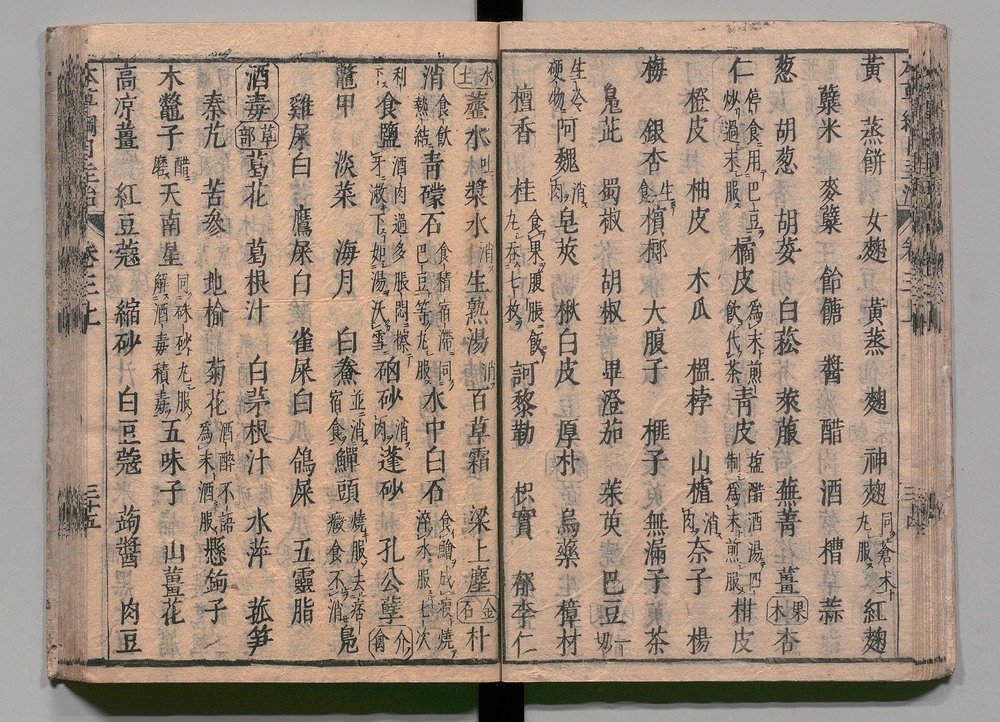 黃 蒸餅 女麴 黃蒸 麴 神麴 同蒼朮丸服 紅麴
糵米 麥糵 飴餹 醬 醋 酒 糟 蒜
葱 胡葱 胡荽 白菘 萊菔 蕪菁 薑 果木 杏
仁 停食用巴豆炒過末服 橘皮 為末煎飲代茶 青皮 鹽醋酒湯四制為末煎服 柑皮
橙皮 柚皮 木瓜 榅桲 山樝 消肉 柰子 楊
梅 銀杏 生食 檳榔 大腹子 榧子 無漏子 茶
鳥芘 蜀椒 胡椒 畢澄茄 茱萸 巴豆 一切
生冷硬物 阿魏 消肉 皂莢 楸白皮 厚朴 烏藥 樟材
檀香 桂 食果腹脹飯丸吞七枚 訶黎勒 枳實 郁李仁
水土 虀水 吐 漿水 消 生熟湯 消 百草霜 梁上塵 金石 朴
消 食飲熱結 青礞石 食積宿滯同巴豆等丸服 水中白石 食鱠成瘕燒淬水服七次
利下 食鹽 酒肉過多脹悶擦牙漱下如湯沃雪 硇砂 消肉 蓬砂 孔公孽 介禽
鼈甲 淡菜 海月 白鯗 並消宿食 鱓頭 燒服去痞癥食不消 鳧
雞屎白 鷹屎白 雀屎白 鴿屎 五靈脂
酒毒 草部 葛花 葛根汁 白茅根汁 水萍 菰笋
秦艽 苦參 地榆 菊花 酒醉不語為末酒服 懸鉤子
木鼈子 醋磨 天南星 同硃砂丸服解酒毒積毒 五味子 山薑花
高凉薑 紅豆蔻 縮砂 白豆蔻 蒟醬 肉豆
卷三上
三十五